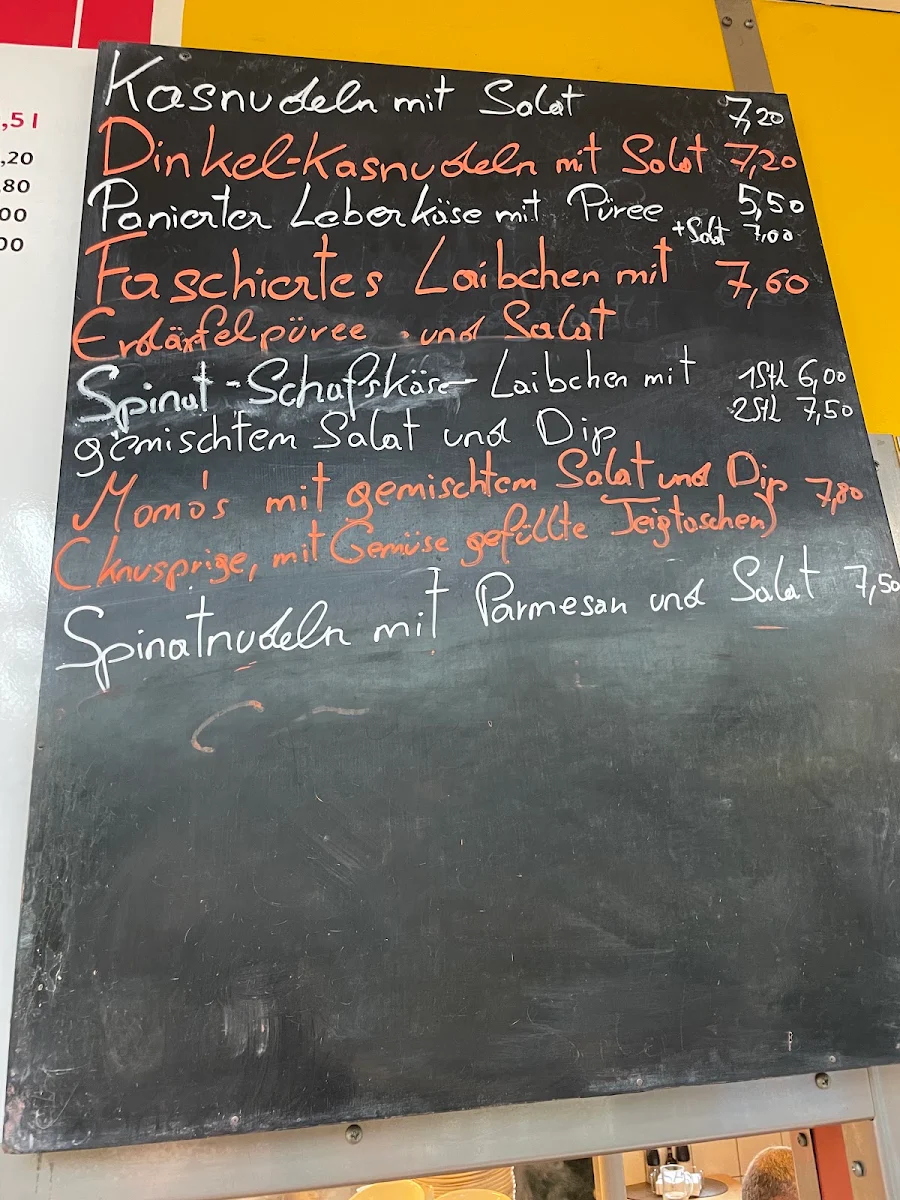 ,5 l
,20
,80
00
00
Kasnudeln mit Salat 7,20
Dinkel-Kasnudeln mit Salat 7,20
Panierter Leberkäse mit Püree 5,50
+Salat 7,00
Faschiertes Laibchen mit 7,60
Erdäpfelpüree und Salat
Spinat-Schafskäse-Laibchen mit 1Stk 6,00
gemischtem Salat und Dip 2Stk 7,50
Momo's mit gemischtem Salat und Dip 7,80
(knusprige, mit Gemüse gefüllte Teigtaschen)
Spinatnudeln mit Parmesan und Salat 7,50